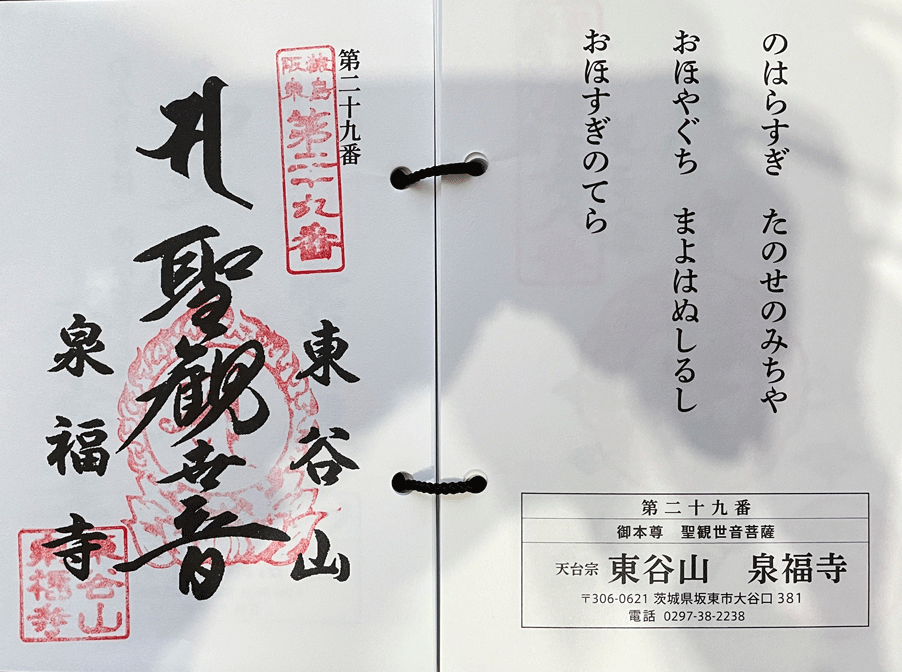 のはらすぎ　たのせのみちや
おほやぐち　まよはぬしるし
おほすぎのてら
第二十九番
御本尊　聖観世音菩薩
天台宗 東谷山　泉福寺
〒306-0621 茨城県坂東市大谷口 381
電話 0297-38-2238
第二十九番
猿島
阪東
第二十九番
東谷山
聖観世音
泉福寺
東谷山
泉福寺